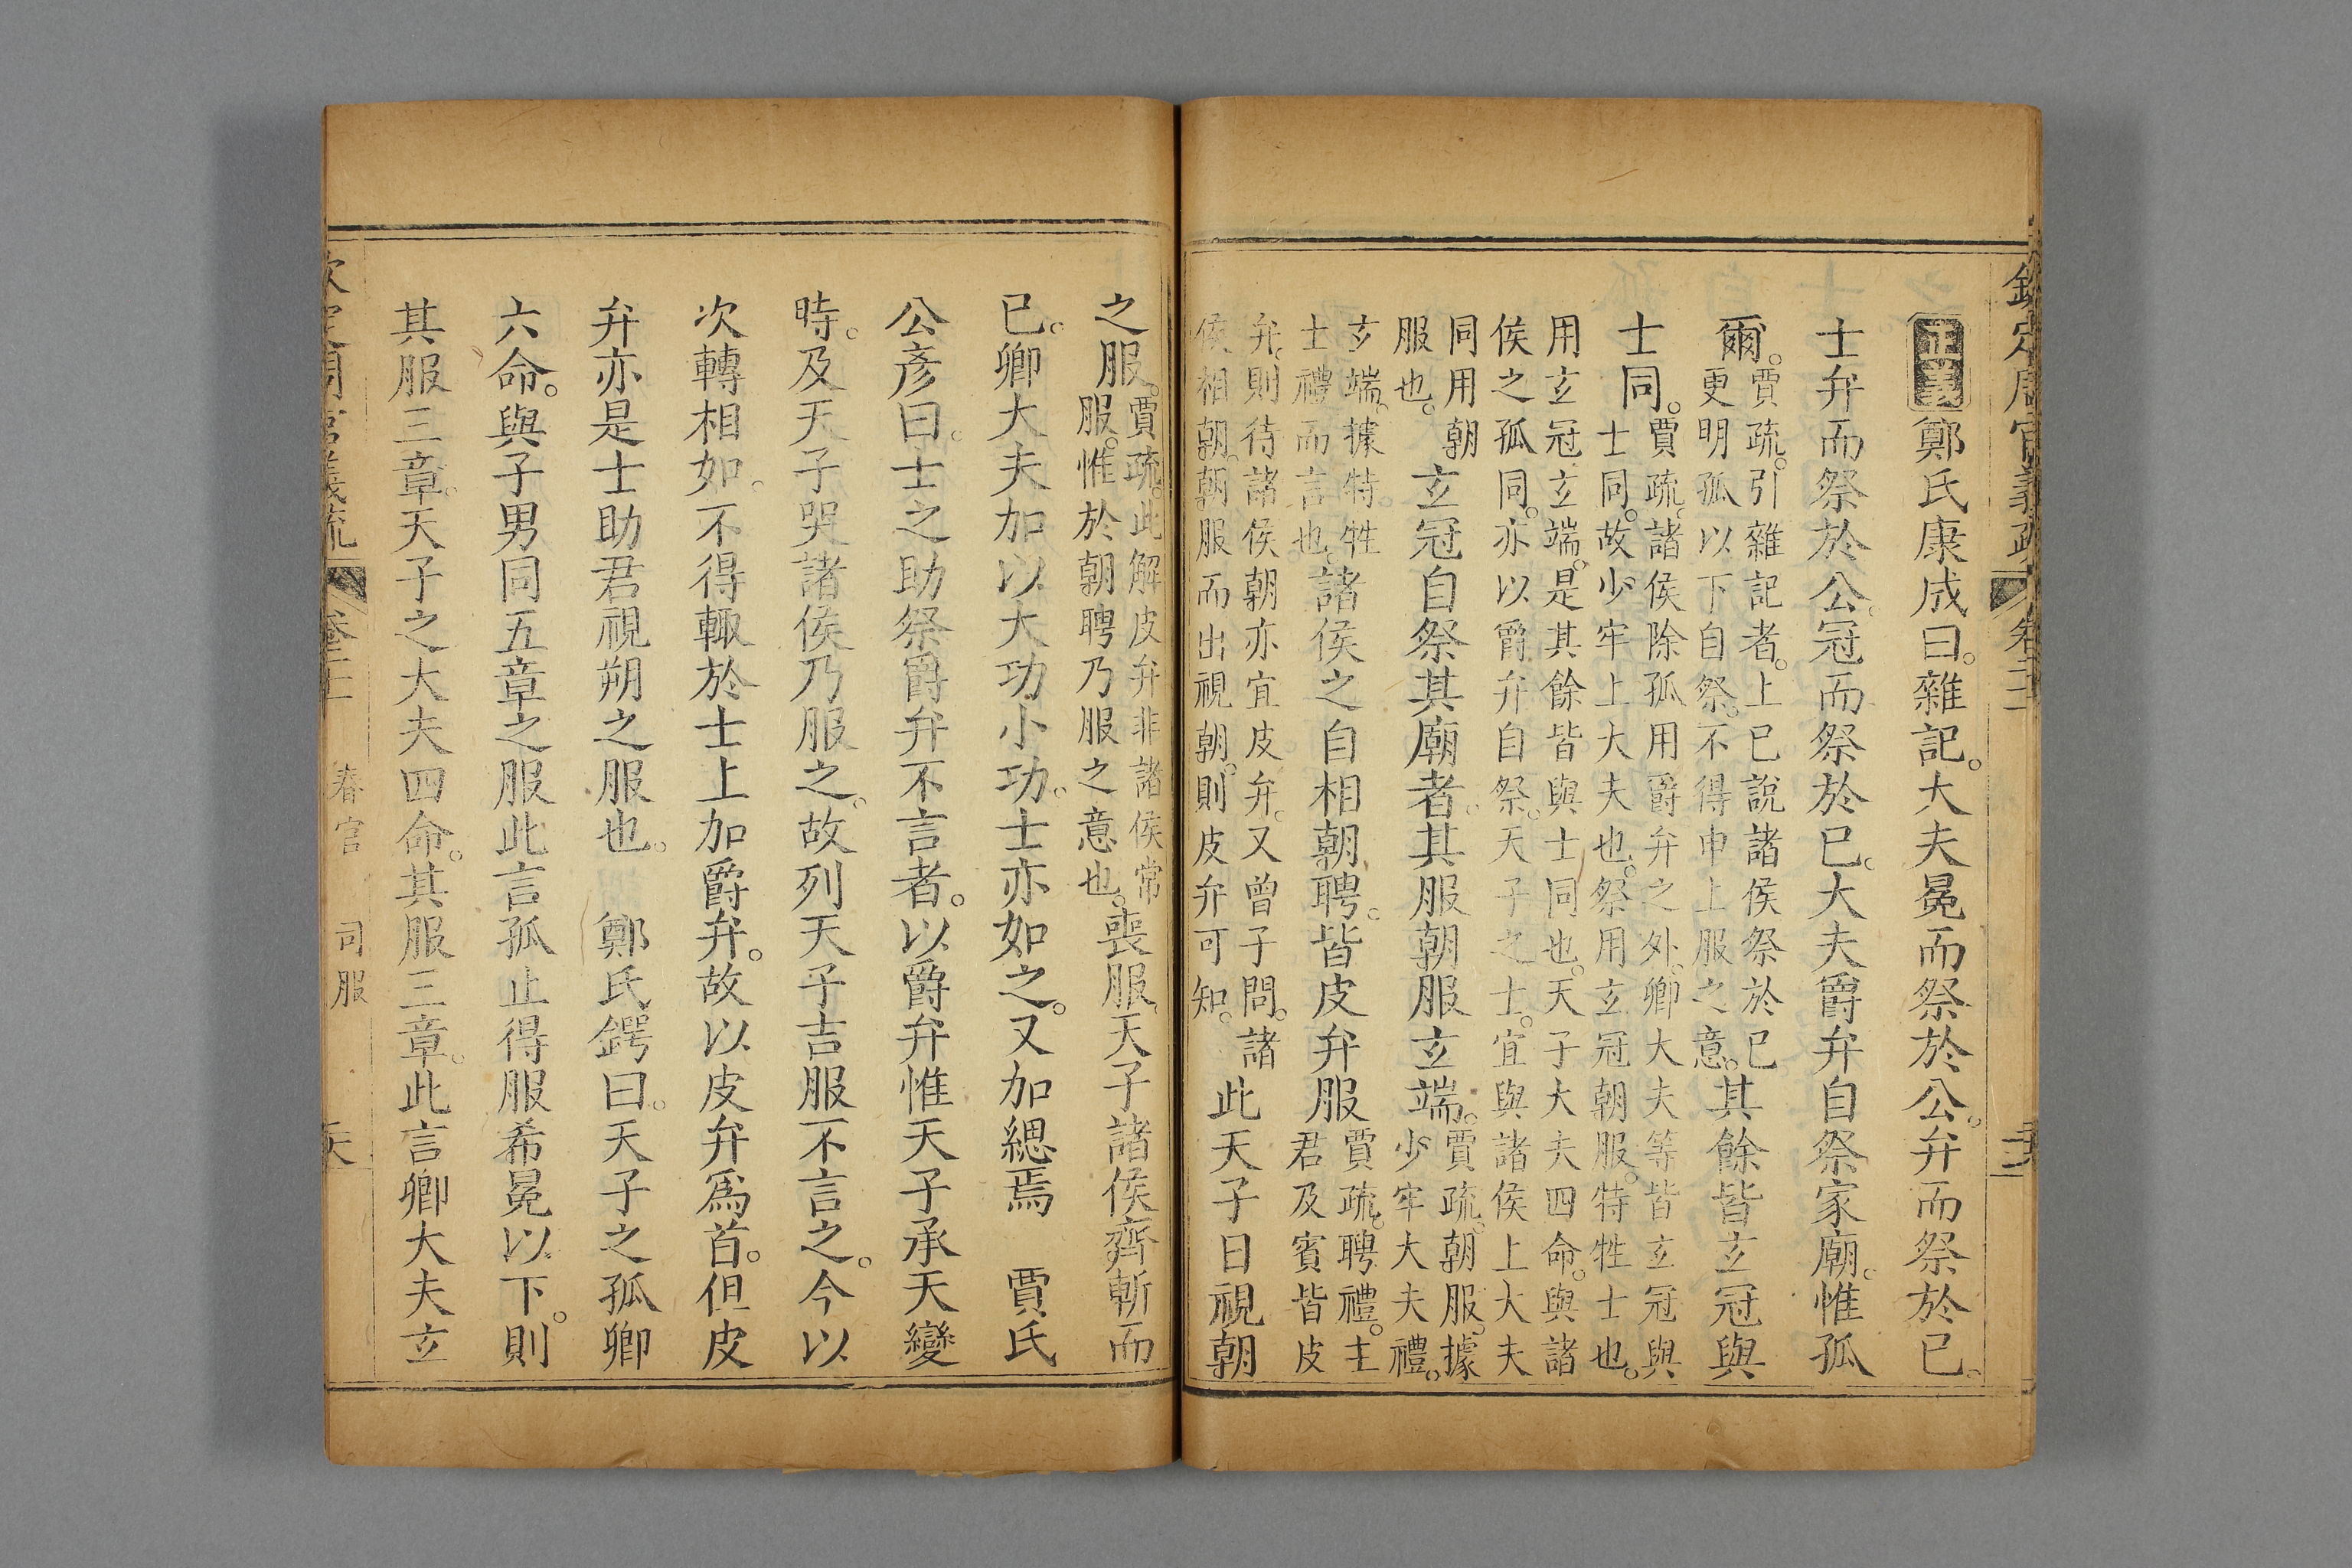 欽定周官義疏 卷
正義鄭氏康成曰。雜記。大夫冕而祭於公。弁而祭於已。
士弁而祭於公。冠而祭於已。大夫爵弁自祭家廟。惟孤
爾。
賈疏。引雜記者。上已說諸侯祭於已
更明孤以下自祭。不得申上服之意。
其餘皆玄冠與
士同。
賈疏。諸侯除孤用爵弁之外。卿大夫等皆玄冠與
士同。故少牢上大夫也。祭用玄冠朝服。特牲士也。
用玄冠玄端。是其餘皆與士同也。天子大夫四命。與諸
侯之孤同。亦以爵弁自祭。天子之士。宜與諸侯上大夫
同用朝
服也。
玄冠自祭其廟者。其服朝服玄端。
賈疏。朝服。據
少牢大夫禮。
玄端。據特牲
士禮而言也。
諸侯之自相朝聘。皆皮弁服
賈疏。聘禮。主
君及賓皆皮
弁。則待諸侯朝亦宜皮弁。又曾子問。諸
侯相朝。朝服而出視朝。則皮弁可知。
此天子日視朝
之服。
賈疏。此解皮弁非諸侯常
服。惟於朝聘乃服之意也。
喪服。天子諸侯齊斬而
已。卿大夫加以大功小功。士亦如之。又加緦焉 賈氏
公彥曰。士之助祭爵弁不言者。以爵弁惟天子承天變
時。及天子哭諸侯乃服之。故列天子吉服不言之。今以
次轉相如。不得輙於士上加爵弁。故以皮弁爲首。但皮
弁亦是士助君視朔之服也。 鄭氏鍔曰。天子之孤卿
六命。與子男同五章之服此言孤止得服希冕以下。則
其服三章。天子之大夫四命。其服三章。此言卿大夫玄
春官 司服